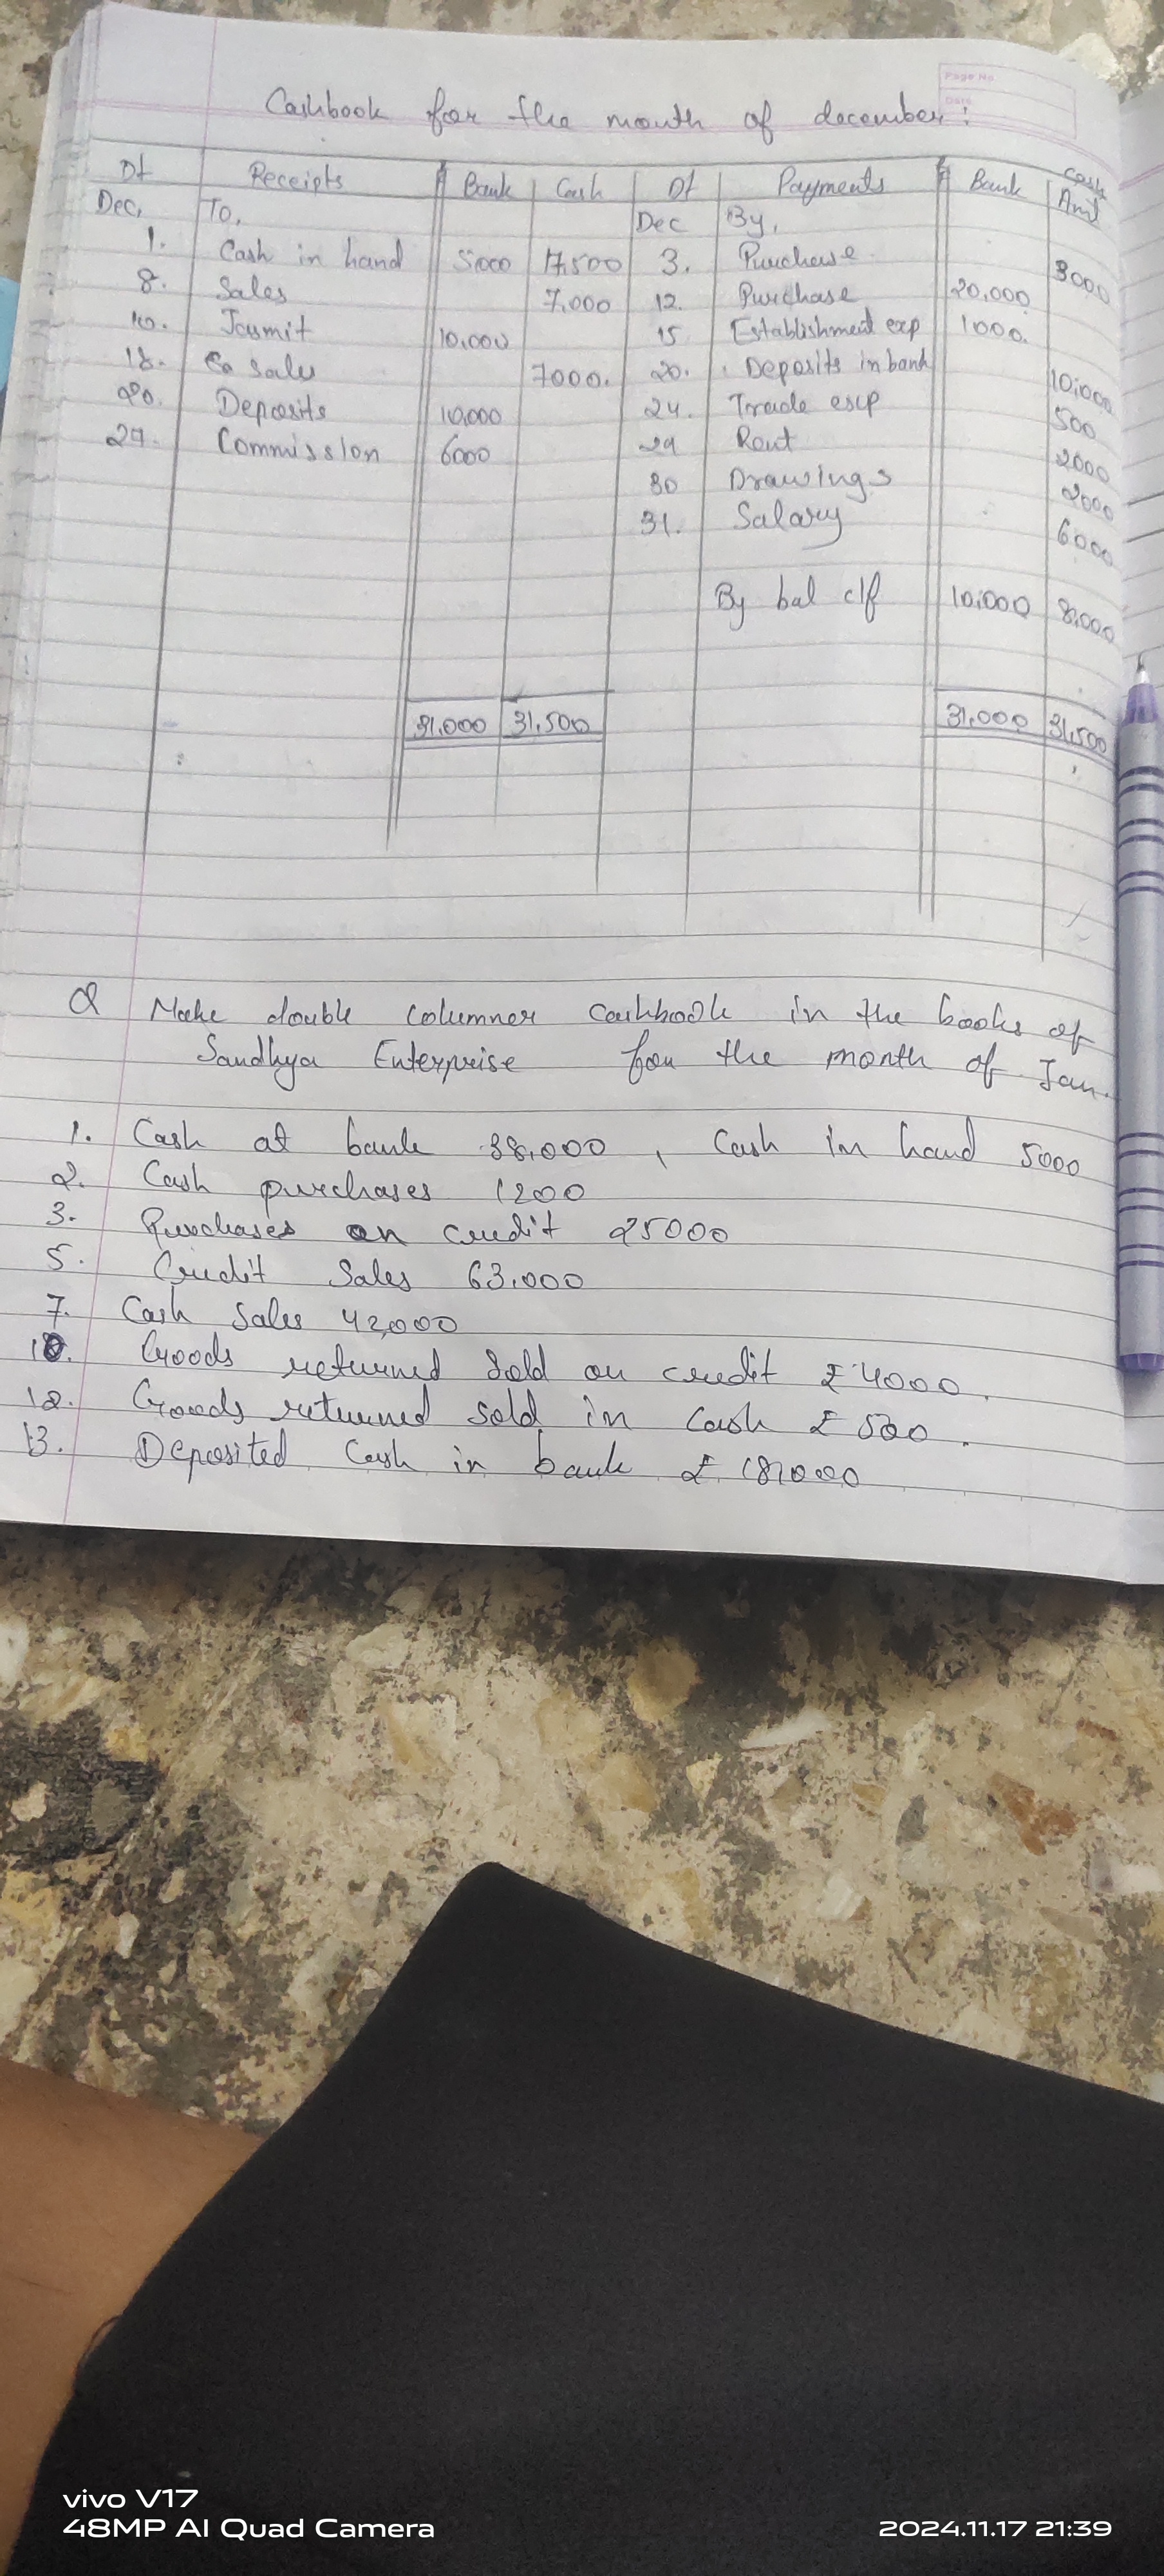 Page No.
Date
Cashbook for the month of december :
Dt Receipts Bank Cash Dt Payments Bank Cash Amt
Dec, To, Dec By,
1. Cash in hand 5000 17,500 3. Purchase 3000
8. Sales 7,000 12. Purchase 20,000
10. Jasmit 10,000 15 Establishment exp 1000.
18. Sales 7000. 20. Deposits in bank 10,000
20. Deposits 10,000 24. Trade exp 500
29. Commission 6000 29 Rent 2000
30 Drawings 2000
31. Salary 6000
By bal c/f 10,000 8,000
31,000 31,500 31,000 31,500
Q Make double columner cashbook in the books of
Sandhya Enterprise for the month of Jan.
1. Cash at bank 38,000 , Cash in hand 5000
2. Cash purchases 1200
3. Purchases on credit 25000
5. Credit Sales 63,000
7. Cash Sales 42,000
10. Goods returned sold on credit ₹ 4000.
12. Goods returned sold in cash ₹ 500.
13. Deposited Cash in bank ₹
vivo V17
48MP AI Quad Camera
2024.11.17 21:39